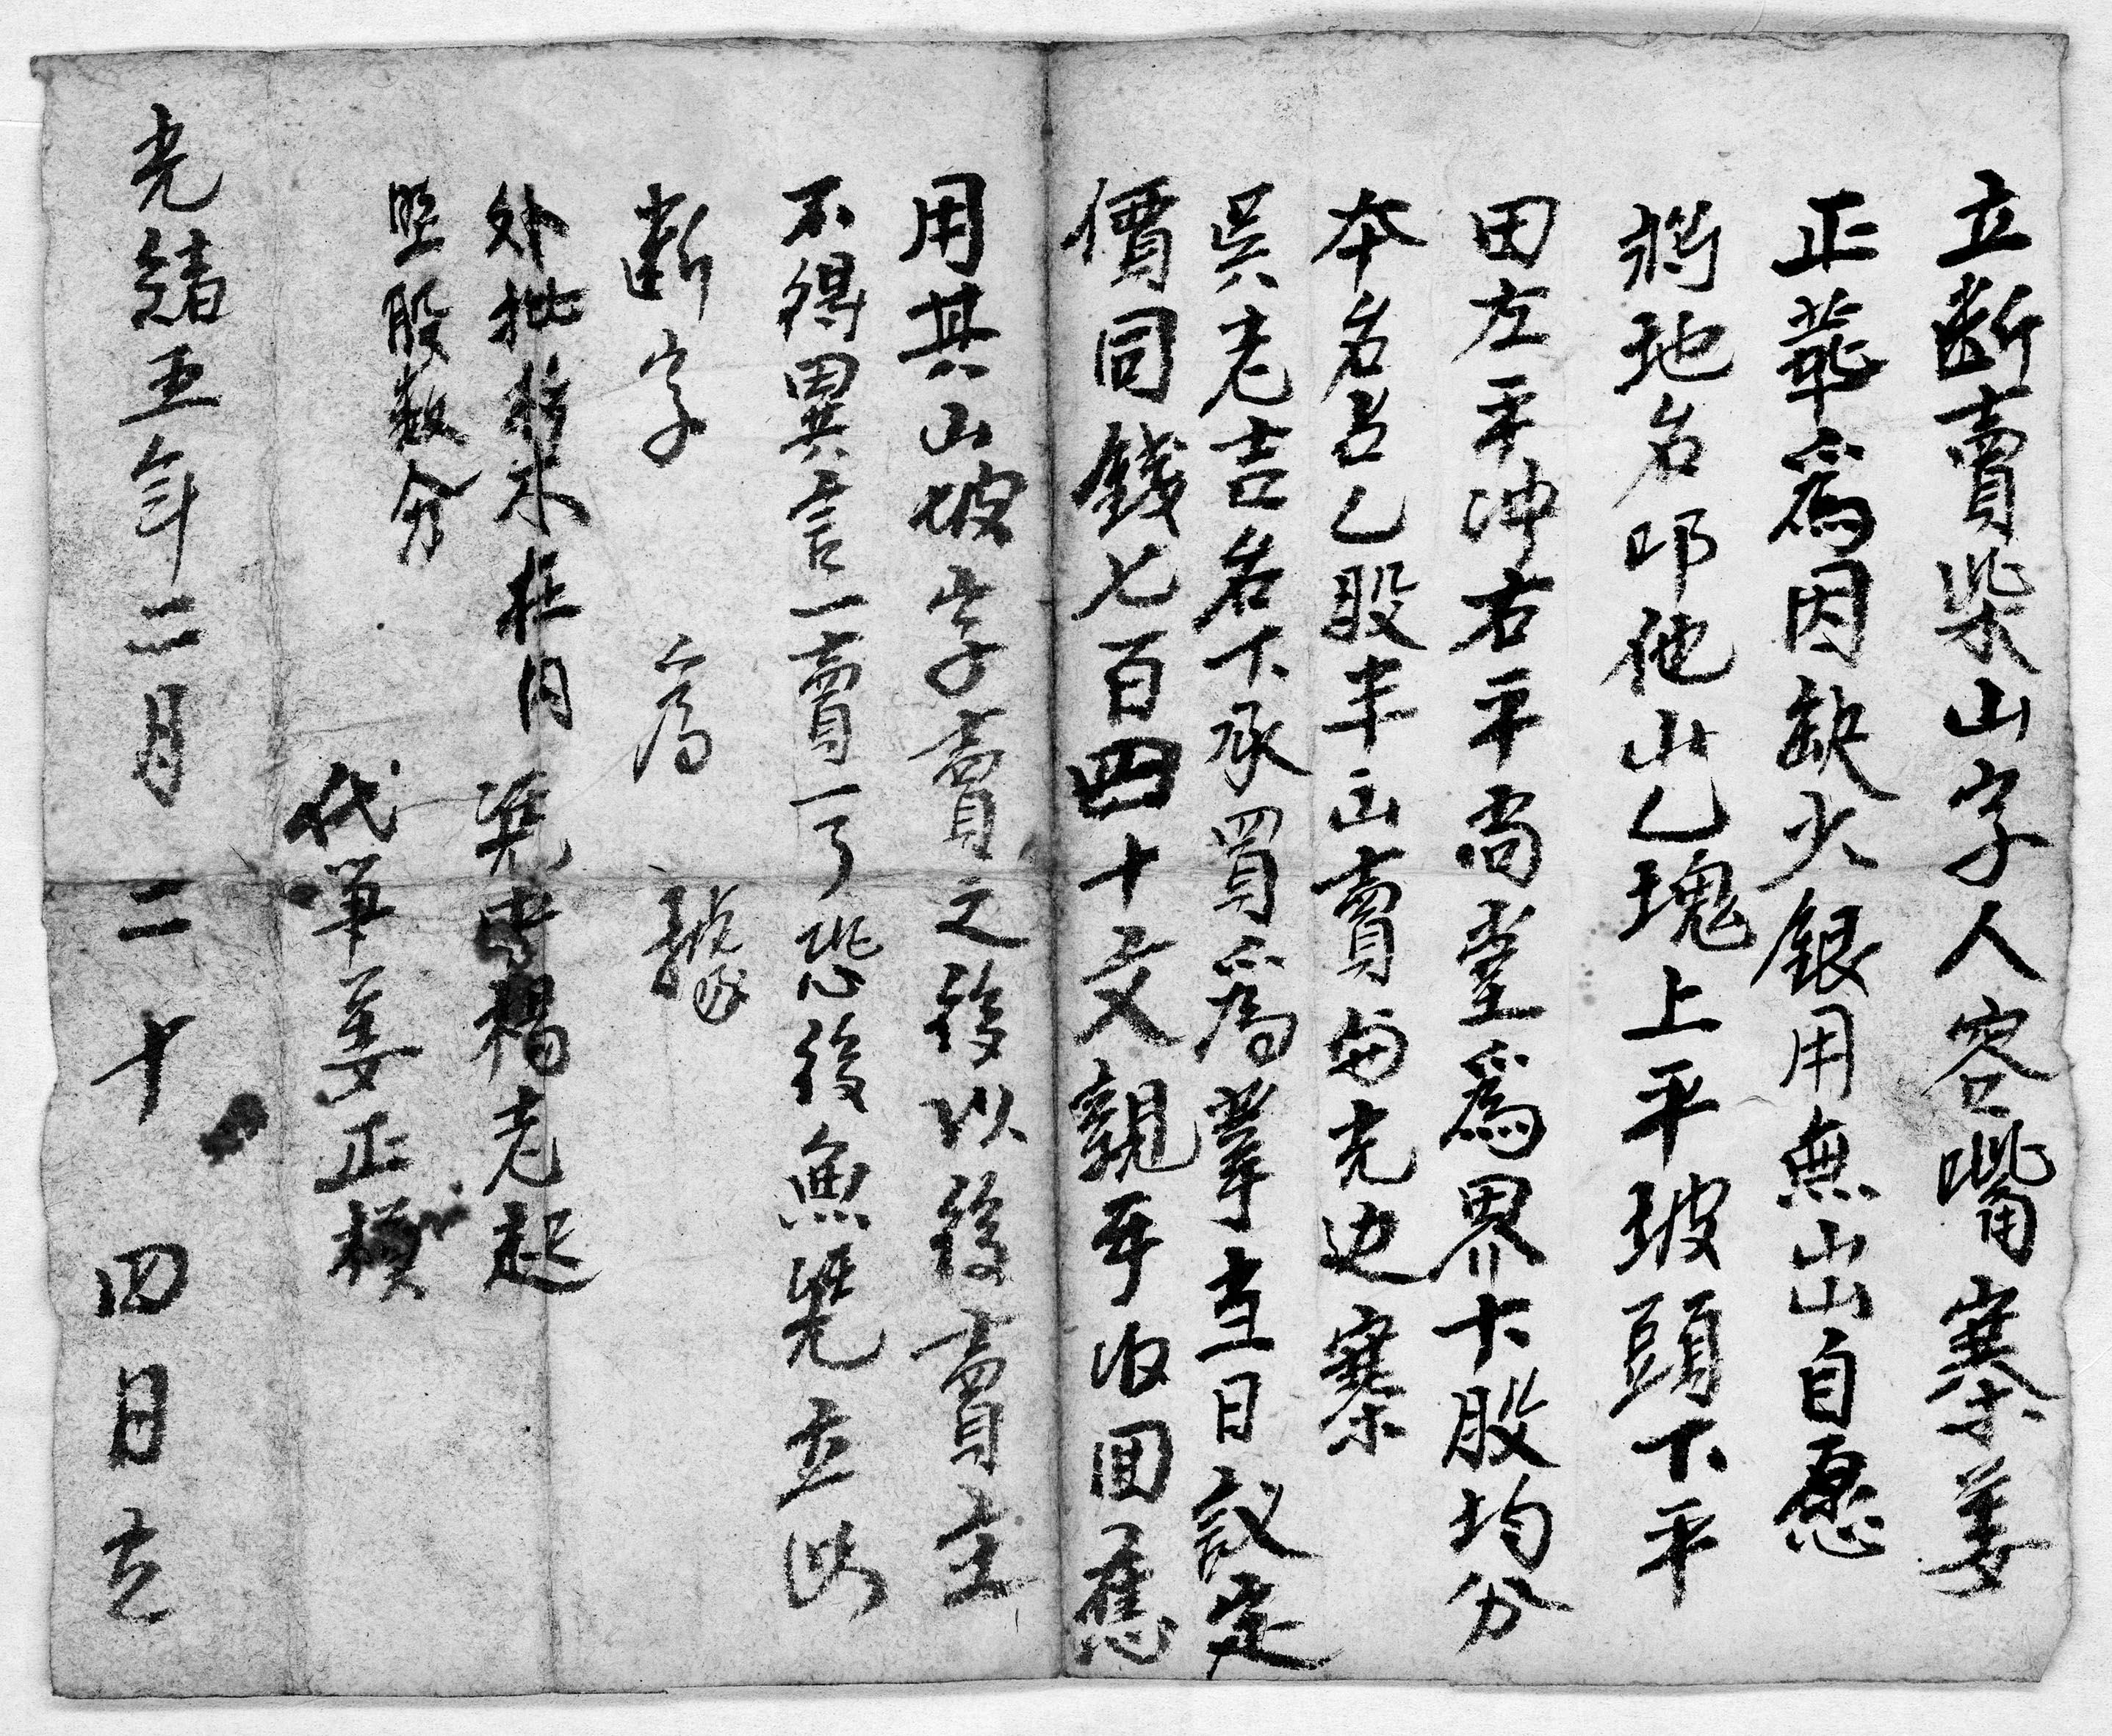 立断賣柴山字人容嘴寨姜
正華爲因缺少銀用無出自愿
將地名叩他山乙塊上平坡頭下平
田左平冲右平崗壹爲界十股均分
本名占乙股半出賣與光边寨
吳老吉名下承買爲業当日議定
價同錢七百四十文親手收回應
用其山坡字賣之後以後賣主
不得異言一賣一了恐後無凴立此
断字 爲 據
外批杉木在内 凴中楊老起
照股数分
代筆姜正模
光緒五年二月二十四日立